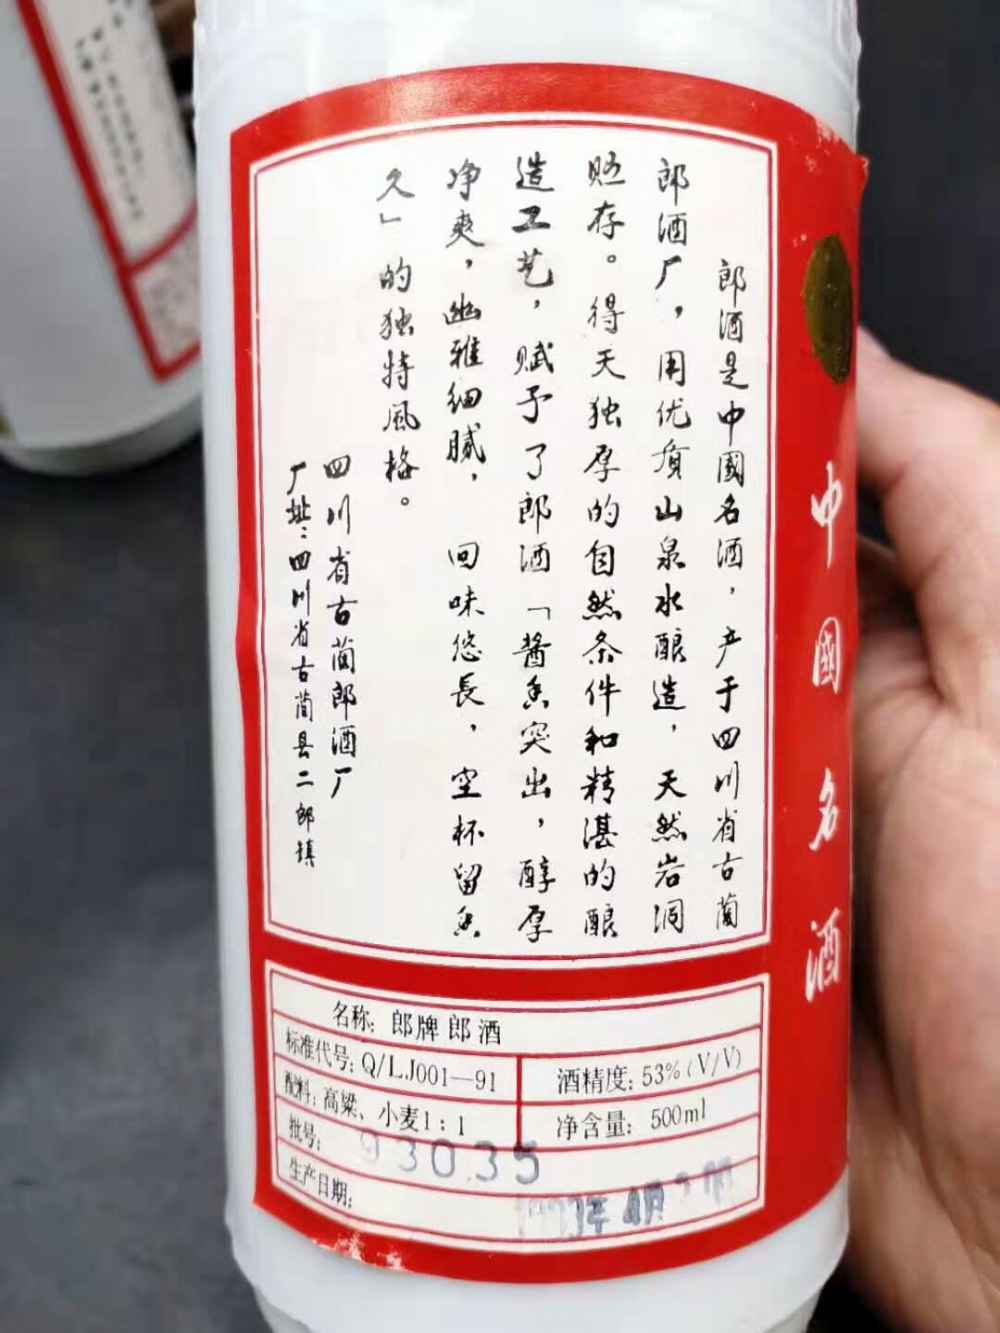 郎酒是中國名酒，产于四川省古蔺
郎酒厂，用优质山泉水酿造，天然岩洞
贮存。得天独厚的自然条件和精湛的酿
造工艺，赋予了郎酒「酱香突出，醇厚
净爽，幽雅细腻，回味悠長，空杯留香
久」的独特風格。
四川省古蔺郎酒厂
厂址：四川省古蔺县二郎镇
中國名酒
名称：郎牌郎酒
标准代号：Q/LJ001—91
酒精度：53%(V/V)
配料：高粱、小麦1：1
净含量：500ml
批号：93035
生产日期：